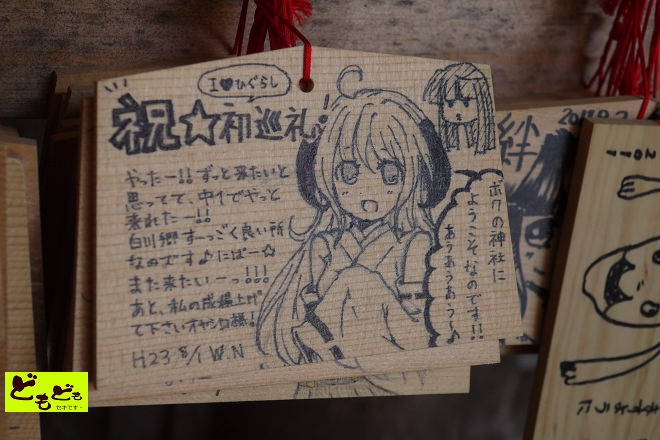 I♥ひぐらし
祝☆初巡礼!
やったー!!ずっと来たいと
思ってて、中1でやっと
来れたー!!
白川郷すーっごく良い所
なのです♪にぱー☆
また来たいーっ!!!
あと、私の成績上げ
て下さいオヤシロ様!
H23 8/1 W.N
ボクの神社に
ようこそ、なのです!!
あぅあぅあぅあぅ♪
絆
どもども
セキです~